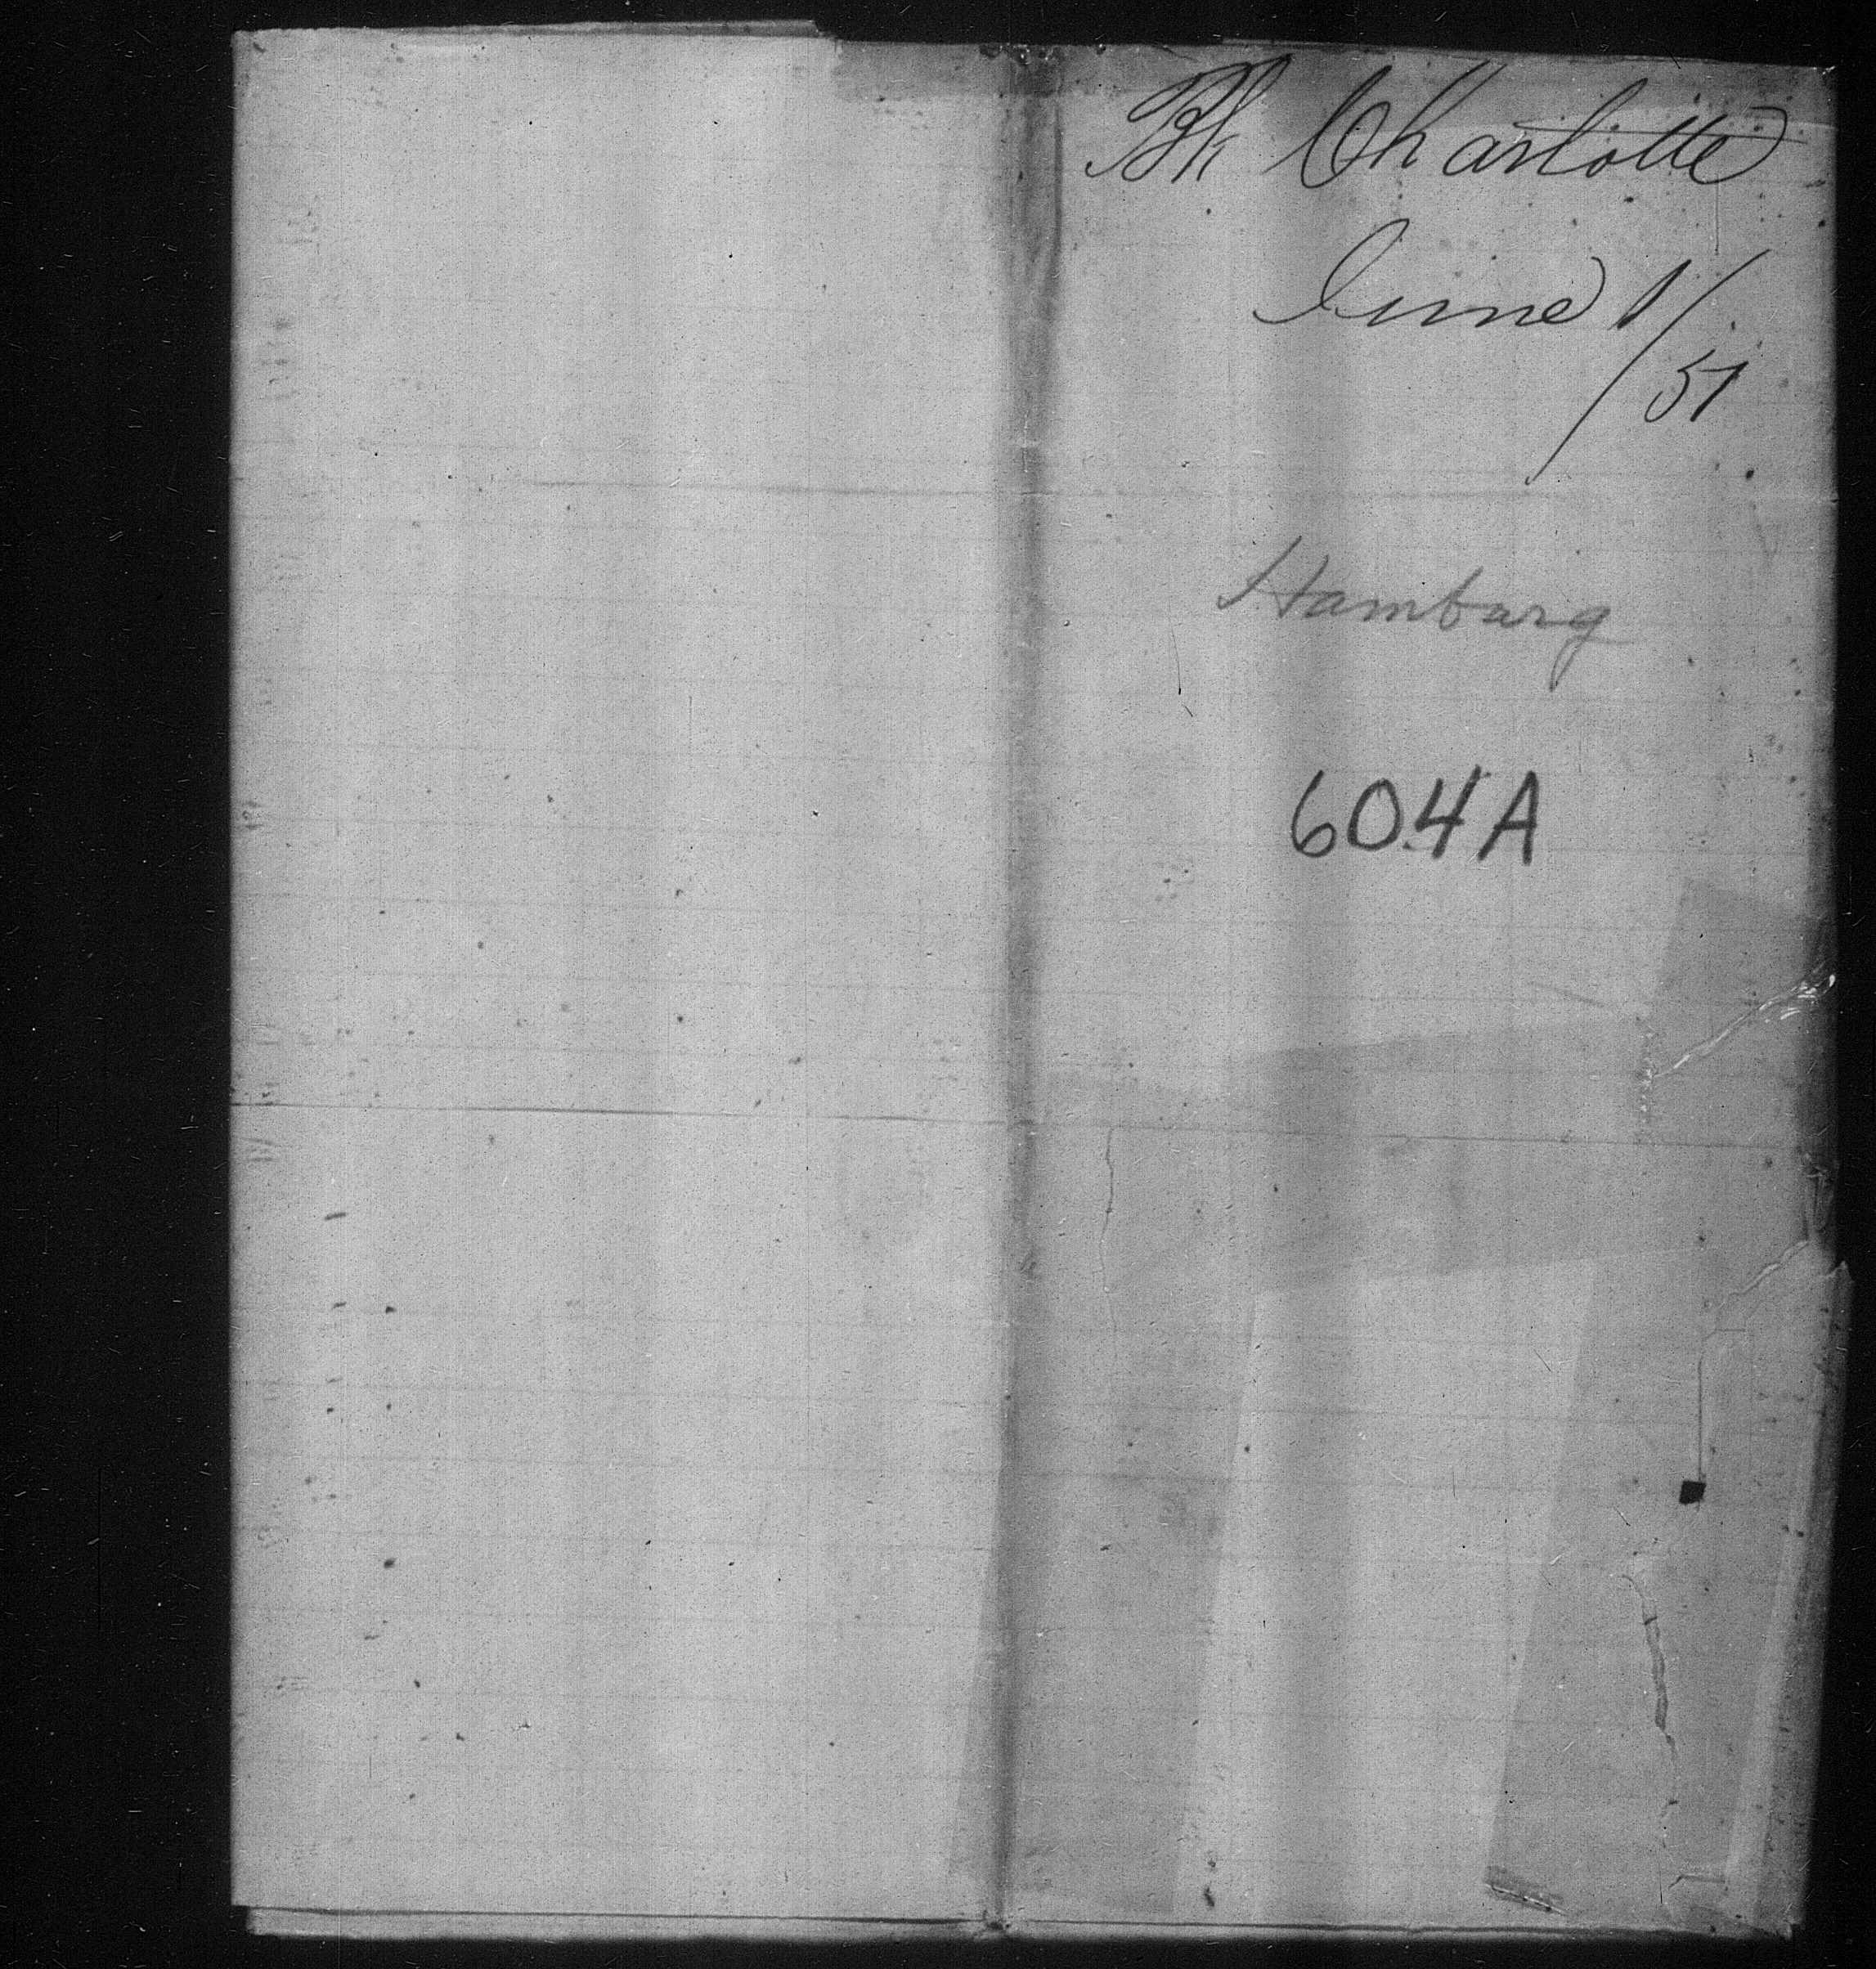 Bk Charlotte
June 1/
51
Hamburg
604A